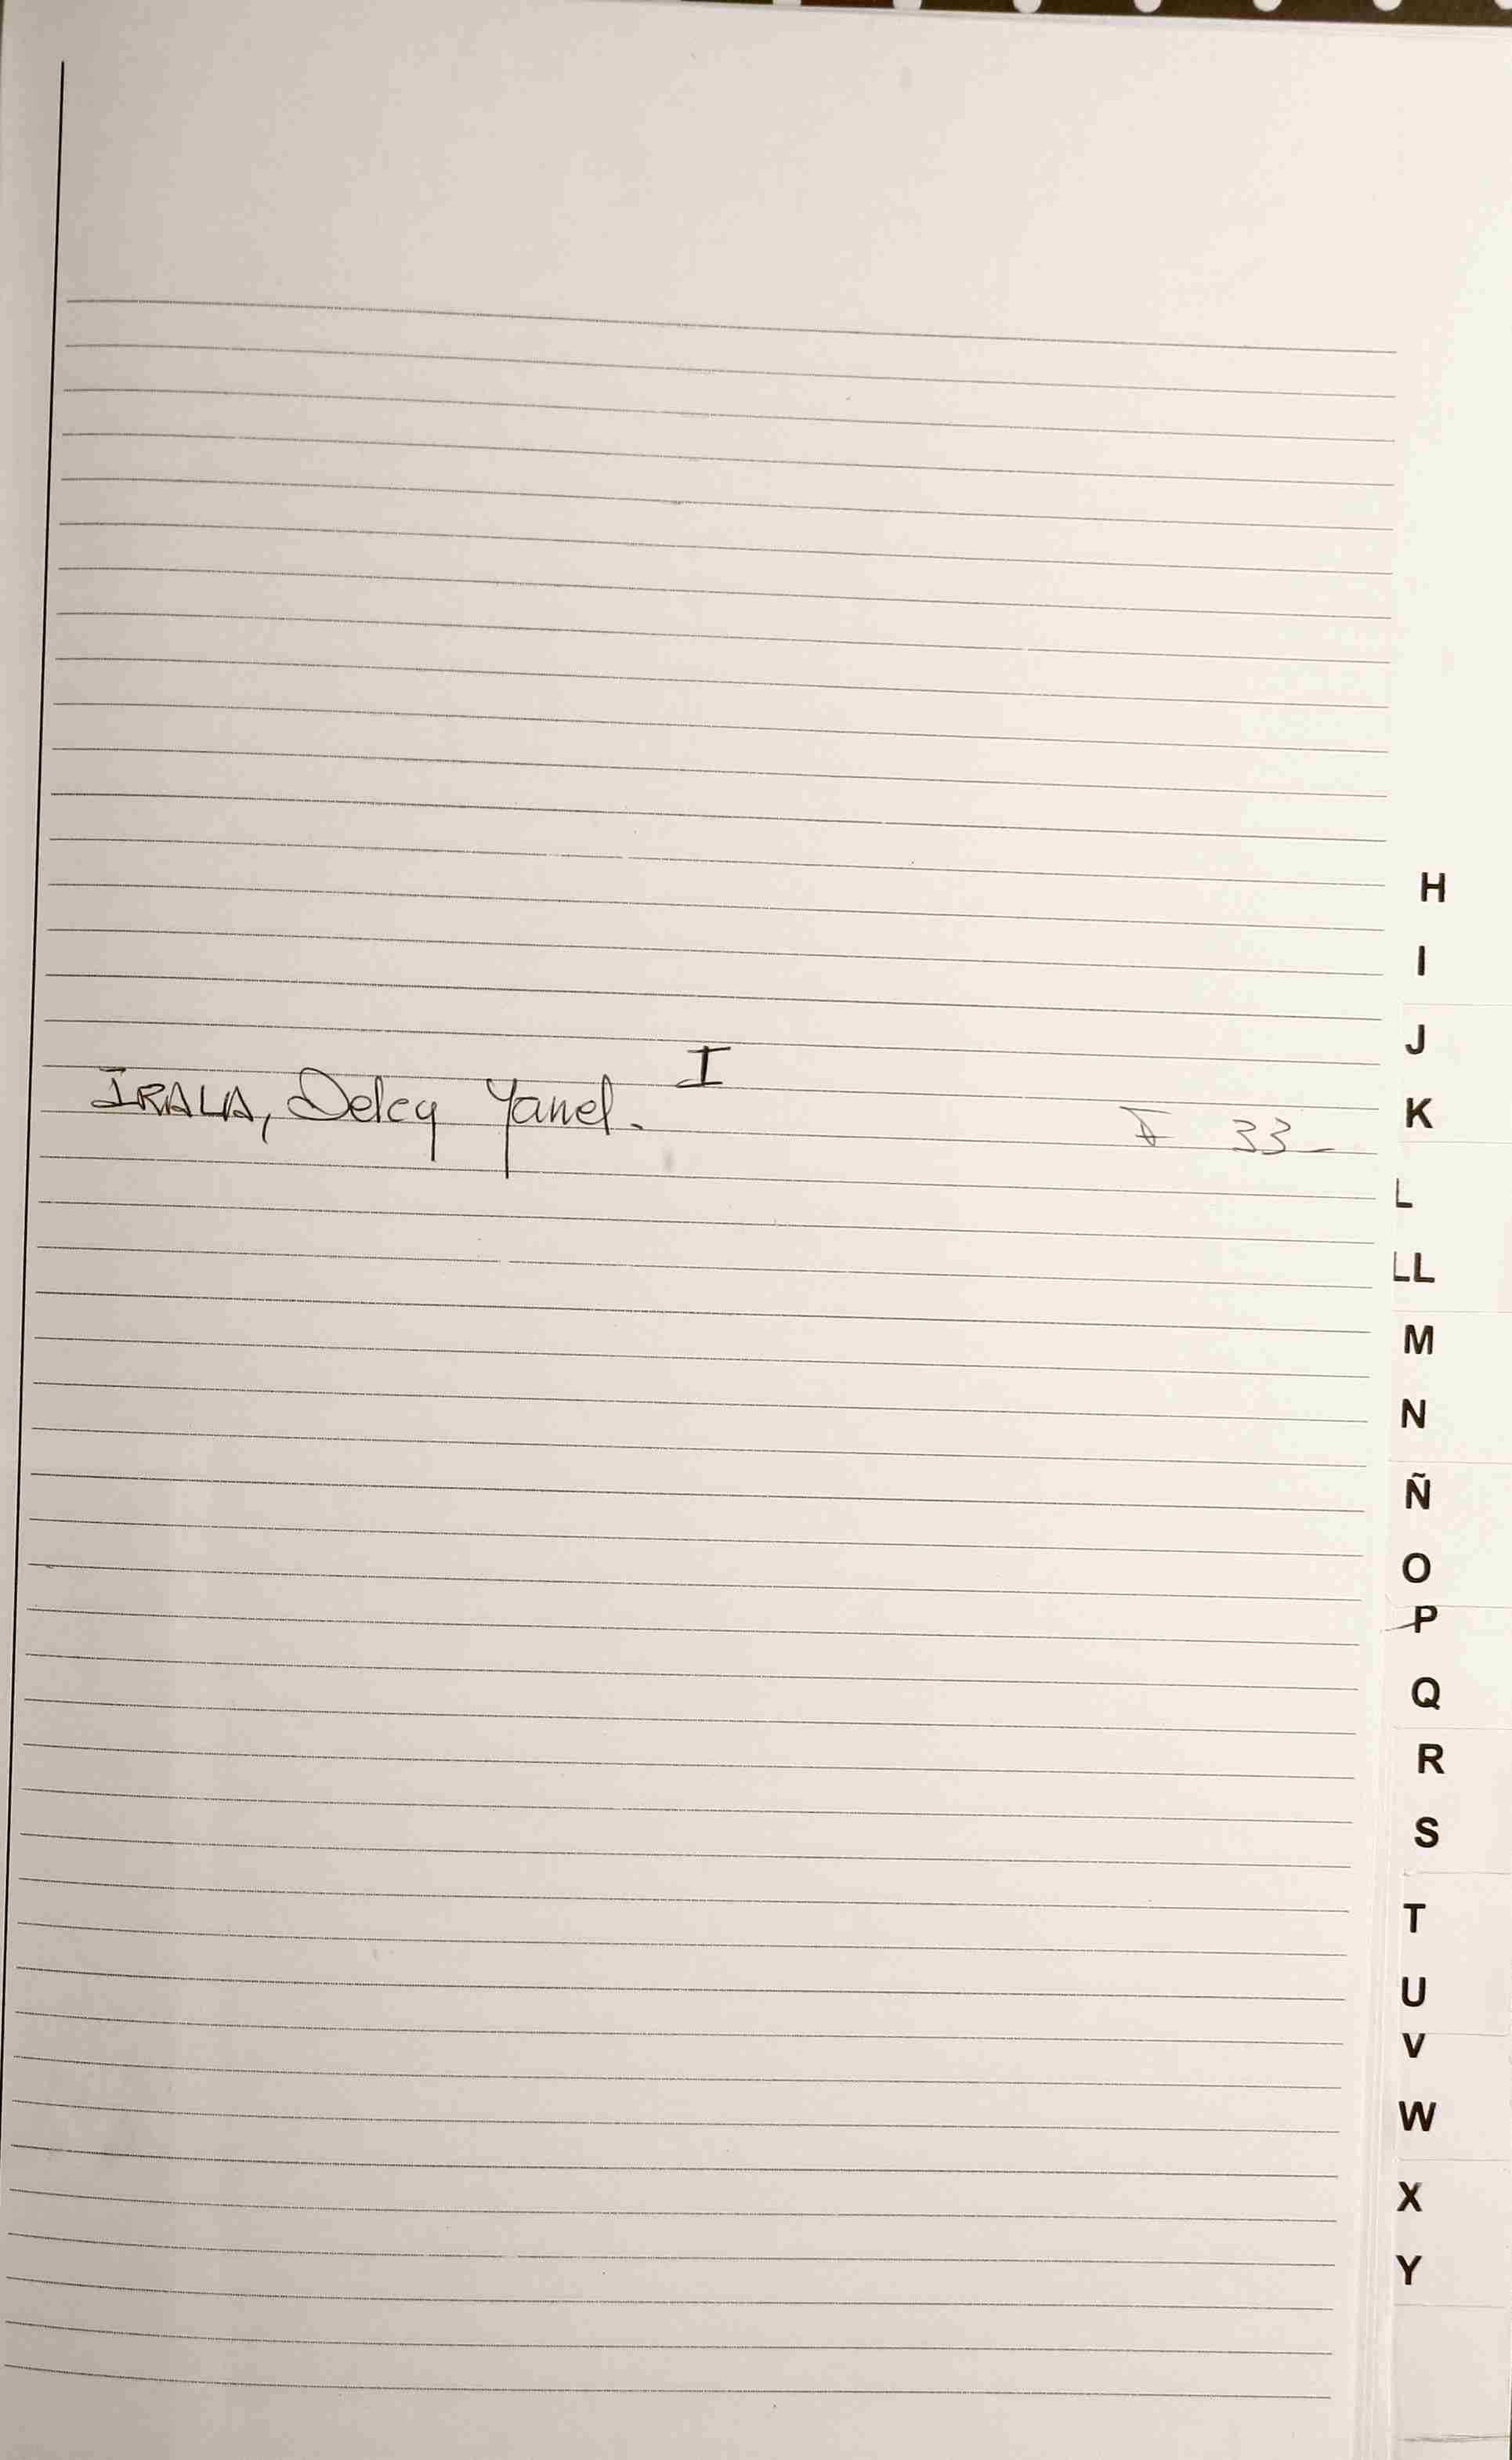 H
I
J
I
IRALA, Delcy Yanel.
33
K
L
LL
M
N
Ñ
O
P
Q
R
S
T
U
V
W
X
Y